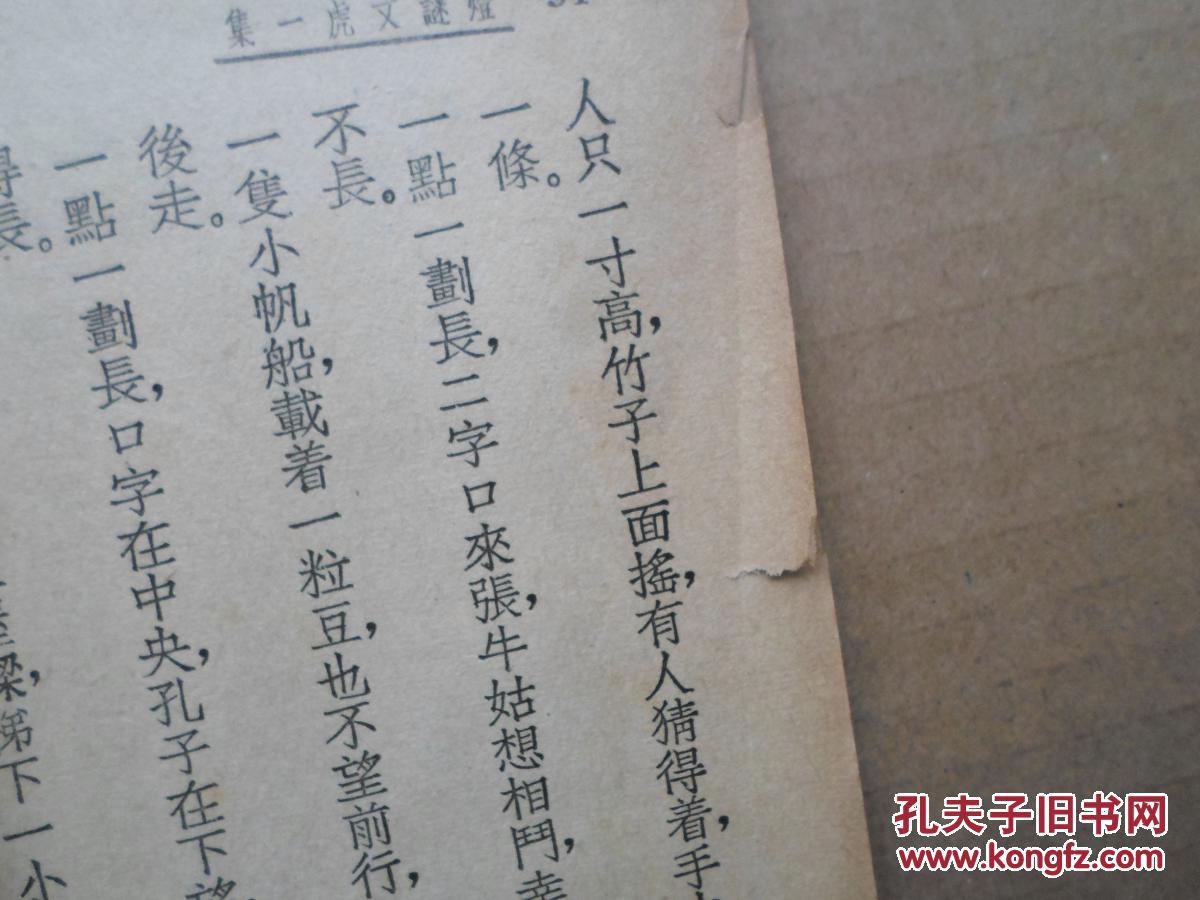 燈謎文虎一集
人只一寸高，竹子上面搖，有人猜得着，手
一條。
一點一劃長，二字口來張，牛姑想相鬥，幸
不長。
一隻小帆船，載着一粒豆，也不望前行，
後走。
一點一劃長，口字在中央，孔子在下
得長。
樑，梯下一小
孔夫子旧书网
www.kongfz.com